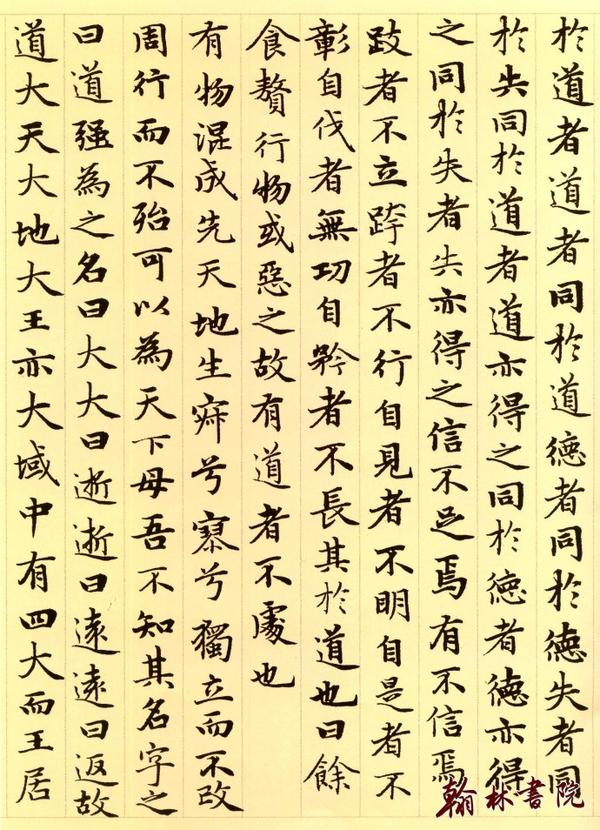 於道者道者同於道德者同於德失者同
於失同於道者道亦得之同於德者德亦得
之同於失者失亦得之信不足焉有不信焉
跂者不立跨者不行自見者不明自是者不
彰自伐者無功自矜者不長其於道也曰餘
食贅行物或惡之故有道者不處也
有物混成先天地生寂兮寥兮獨立而不改
周行而不殆可以為天下母吾不知其名字之
曰道強為之名曰大大曰逝逝曰遠遠曰返故
道大天大地大王亦大域中有四大而王居
翰林書院